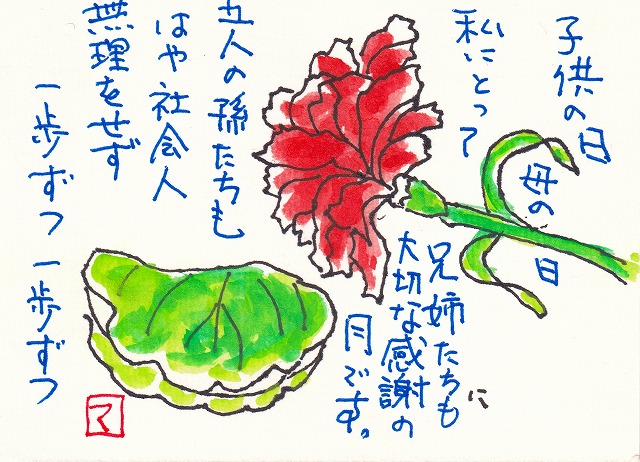 子供の日
母の日
私にとって
兄姉たちも
に
大切な感謝の
月です。
五人の孫たちも
はや社会人
無理をせず
一歩ずつ一歩ずつ
て